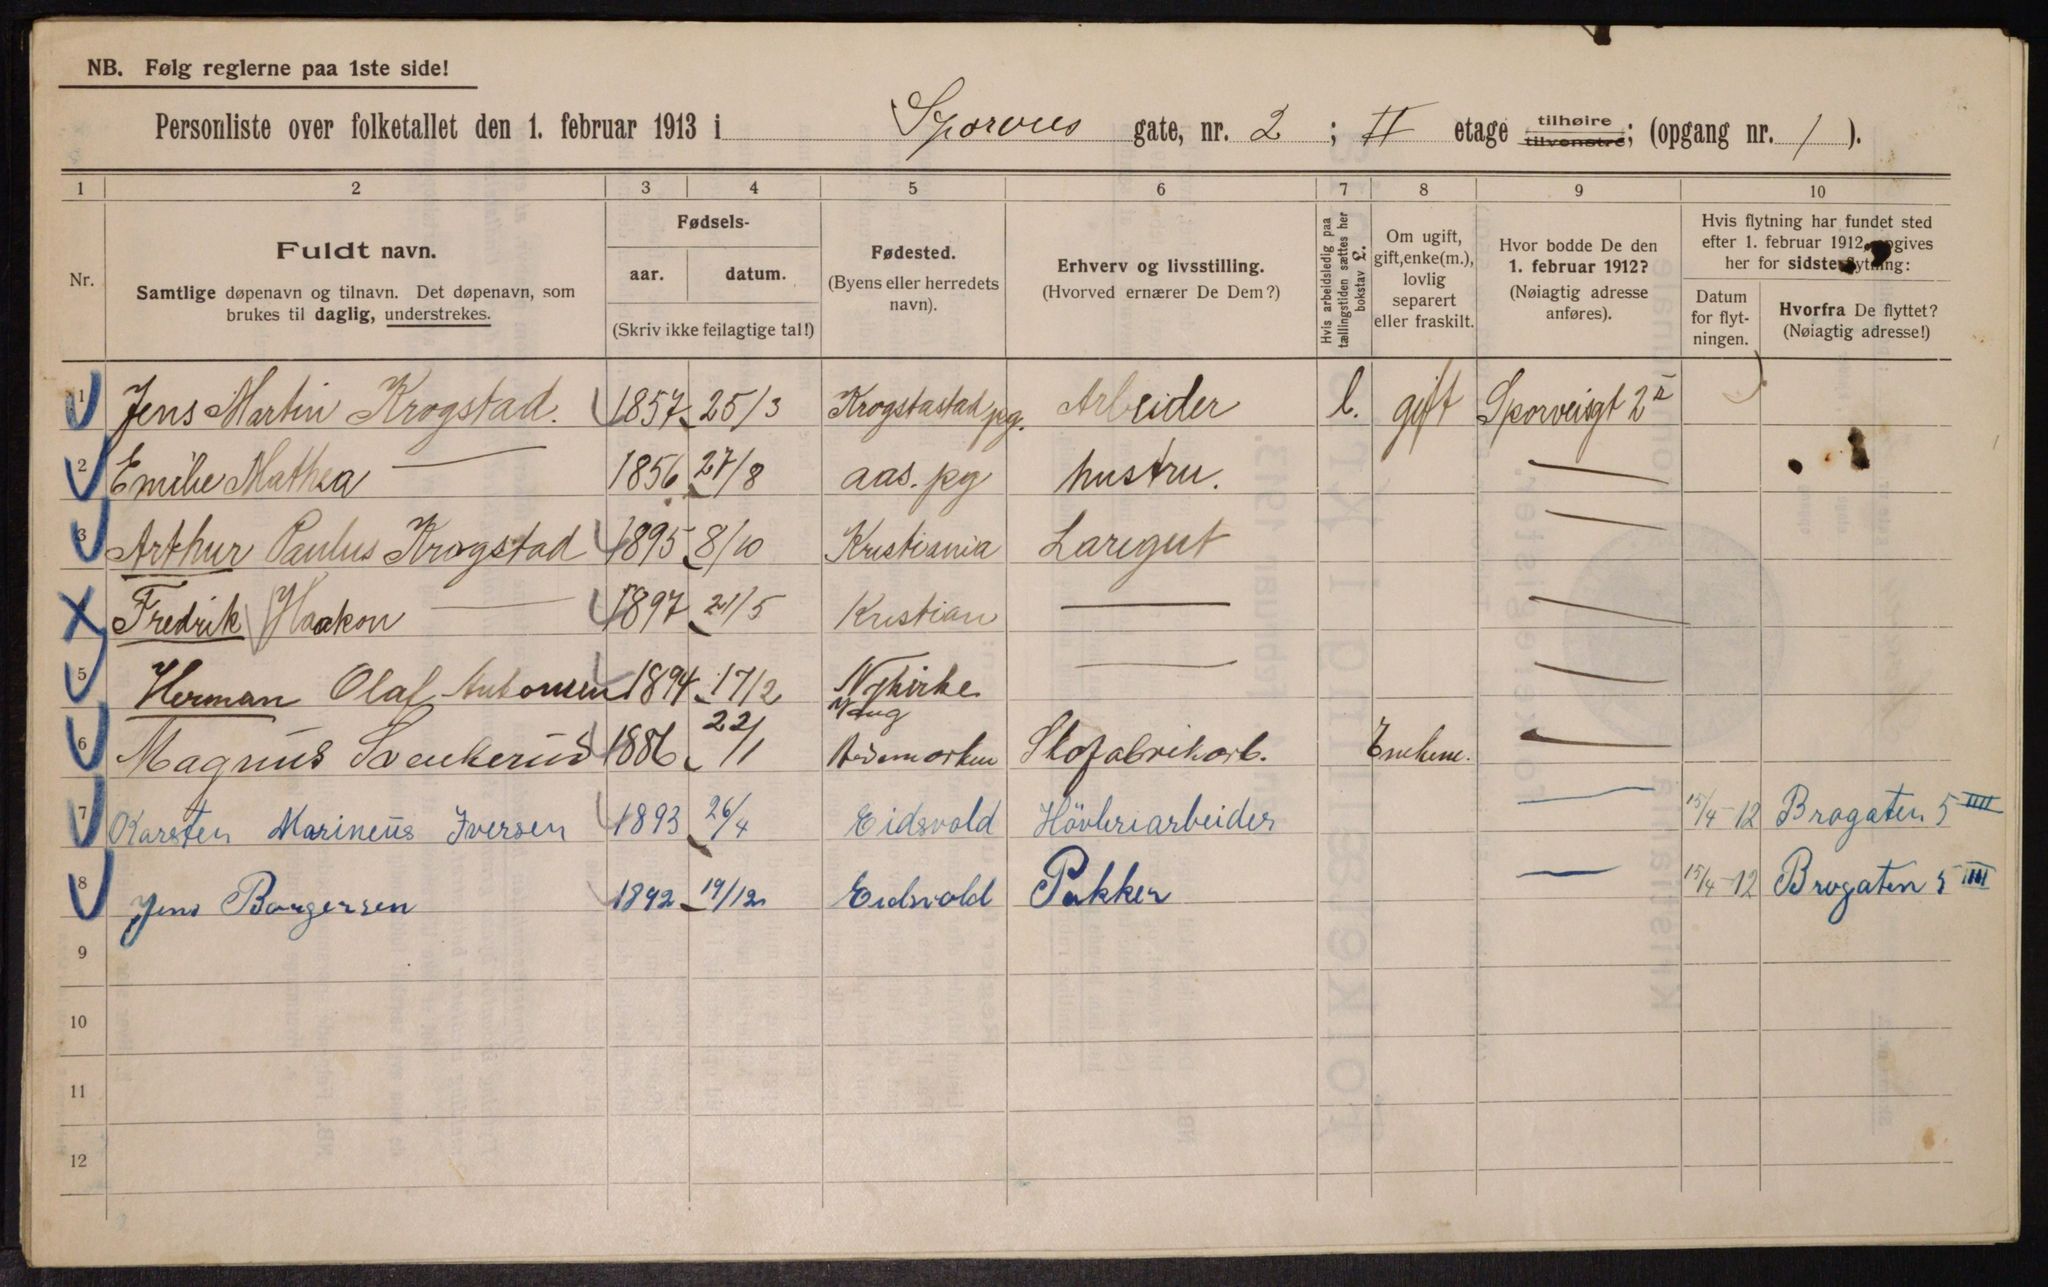 NB. Følg reglerne paa 1ste side!
Personliste over folketallet den 1. februar 1913 i Sporveis gate, nr. 2 ; II etage tilhøire tilvenstre; (opgang nr. 1 ).
1 2 3 4 5 6 7 8 9 10
Nr.
Fuldt navn.
Samtlige døpenavn og tilnavn. Det døpenavn, som
brukes til daglig, understrekes.
Fødsels-
aar. datum.
(Skriv ikke feilagtige tal!)
Fødested.
(Byens eller herredets
navn).
Erhverv og livsstilling.
(Hvorved ernærer De Dem?)
Hvis arbeidsledig paa
tællingstiden sættes her
bokstav £.
Om ugift,
gift, enke(m.),
lovlig
separert
eller fraskilt.
Hvor bodde De den
1. februar 1912?
(Nøiagtig adresse
anføres).
Hvis flytning har fundet sted
efter 1. februar 1912, opgives
her for sidste flytning:
Datum
for flyt-
ningen.
Hvorfra De flyttet?
(Nøiagtig adresse!)
1 Jens Martin Krogstad. 1857 25/3 Krogstastad pg. Arbeider l. gift Sporveisgt 2 II
2 Emilie Mathea — 1856 27/8 aas. pg hustru. —
3 Arthur Paulus Krogstad 1895 8/10 Kristiania Laregut —
Fredrik Haakon — 1897 21/5 Kristian — —
5 Herman Olaf Antonsen 1894 17/2 Nykirke — —
6 Magnus Svenkerud 1886 22/1 Aadsmarken Skofabrikarb. Enkem. —
7 Karsten Marineus Iversen 1893 26/4 Eidsvold Hövleriarbeider — 15/4-12 Brogaten 5 IIII
8 Jens Borgersen 1892 19/12 Eidsvold Pakker — 15/4-12 Brogaten 5 IIII
9
10
11
12